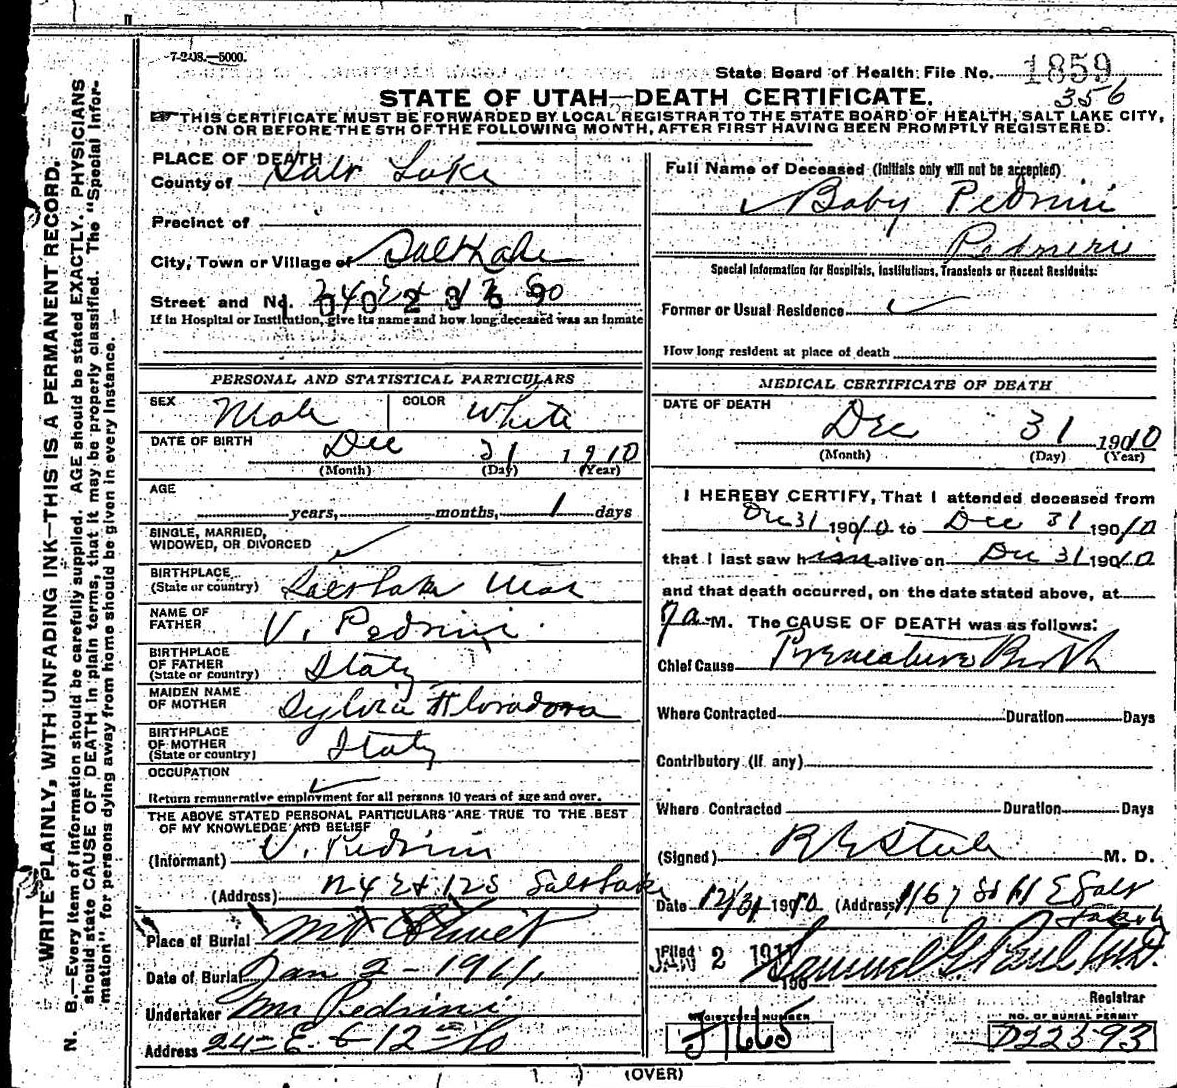 7-2-08.—5000.
State Board of Health File No. 1859
356
STATE OF UTAH—DEATH CERTIFICATE.
THIS CERTIFICATE MUST BE FORWARDED BY LOCAL REGISTRAR TO THE STATE BOARD OF HEALTH, SALT LAKE CITY,
ON OR BEFORE THE 5TH OF THE FOLLOWING MONTH, AFTER FIRST HAVING BEEN PROMPTLY REGISTERED.
WRITE PLAINLY, WITH UNFADING INK—THIS IS A PERMANENT RECORD.
N. B.—Every item of information should be carefully supplied. AGE should be stated EXACTLY. PHYSICIANS
should state CAUSE OF DEATH in plain terms, that it may be properly classified. The "Special Infor-
mation" for persons dying away from home should be given in every instance.
PLACE OF DEATH
County of Salt Lake
Precinct of
City, Town or Village of Salt Lake
Street and No.
If in Hospital or Institution, give its name and how long deceased was an inmate
PERSONAL AND STATISTICAL PARTICULARS
SEX Male COLOR White
DATE OF BIRTH Dec 31 1910
(Month) (Day) (Year)
AGE
years, months, 1 days
SINGLE, MARRIED,
WIDOWED, OR DIVORCED
BIRTHPLACE
(State or country) Salt Lake
NAME OF
FATHER V. Pedrini
BIRTHPLACE
OF FATHER
(State or country) Italy
MAIDEN NAME
OF MOTHER Sylvia
BIRTHPLACE
OF MOTHER
(State or country) Italy
OCCUPATION
Return remunerative employment for all persons 10 years of age and over.
THE ABOVE STATED PERSONAL PARTICULARS ARE TRUE TO THE BEST
OF MY KNOWLEDGE AND BELIEF
(Informant) V. Pedrini
(Address) Salt Lake
Place of Burial Mt Olivet
Date of Burial Jan 2 - 1911
Undertaker Pedrini
Address
Full Name of Deceased (initials only will not be accepted)
Baby Pedrini
Special Information for Hospitals, Institutions, Transients or Recent Residents:
Former or Usual Residence
How long resident at place of death
MEDICAL CERTIFICATE OF DEATH
DATE OF DEATH
Dec 31 1910
(Month) (Day) (Year)
I HEREBY CERTIFY, That I attended deceased from
Dec 31 1910 to Dec 31 1910
that I last saw him alive on Dec 31 1910
and that death occurred, on the date stated above, at
7 a M. The CAUSE OF DEATH was as follows:
Chief Cause Premature Birth
Where Contracted Duration Days
Contributory (If any)
Where Contracted Duration Days
(Signed) M. D.
Date 12/31 1910 (Address)
Filed JAN 2 1911 Samuel G. Paul M.D.
Registrar
REGISTERED NUMBER
NO. OF BURIAL PERMIT
D22393
(OVER)